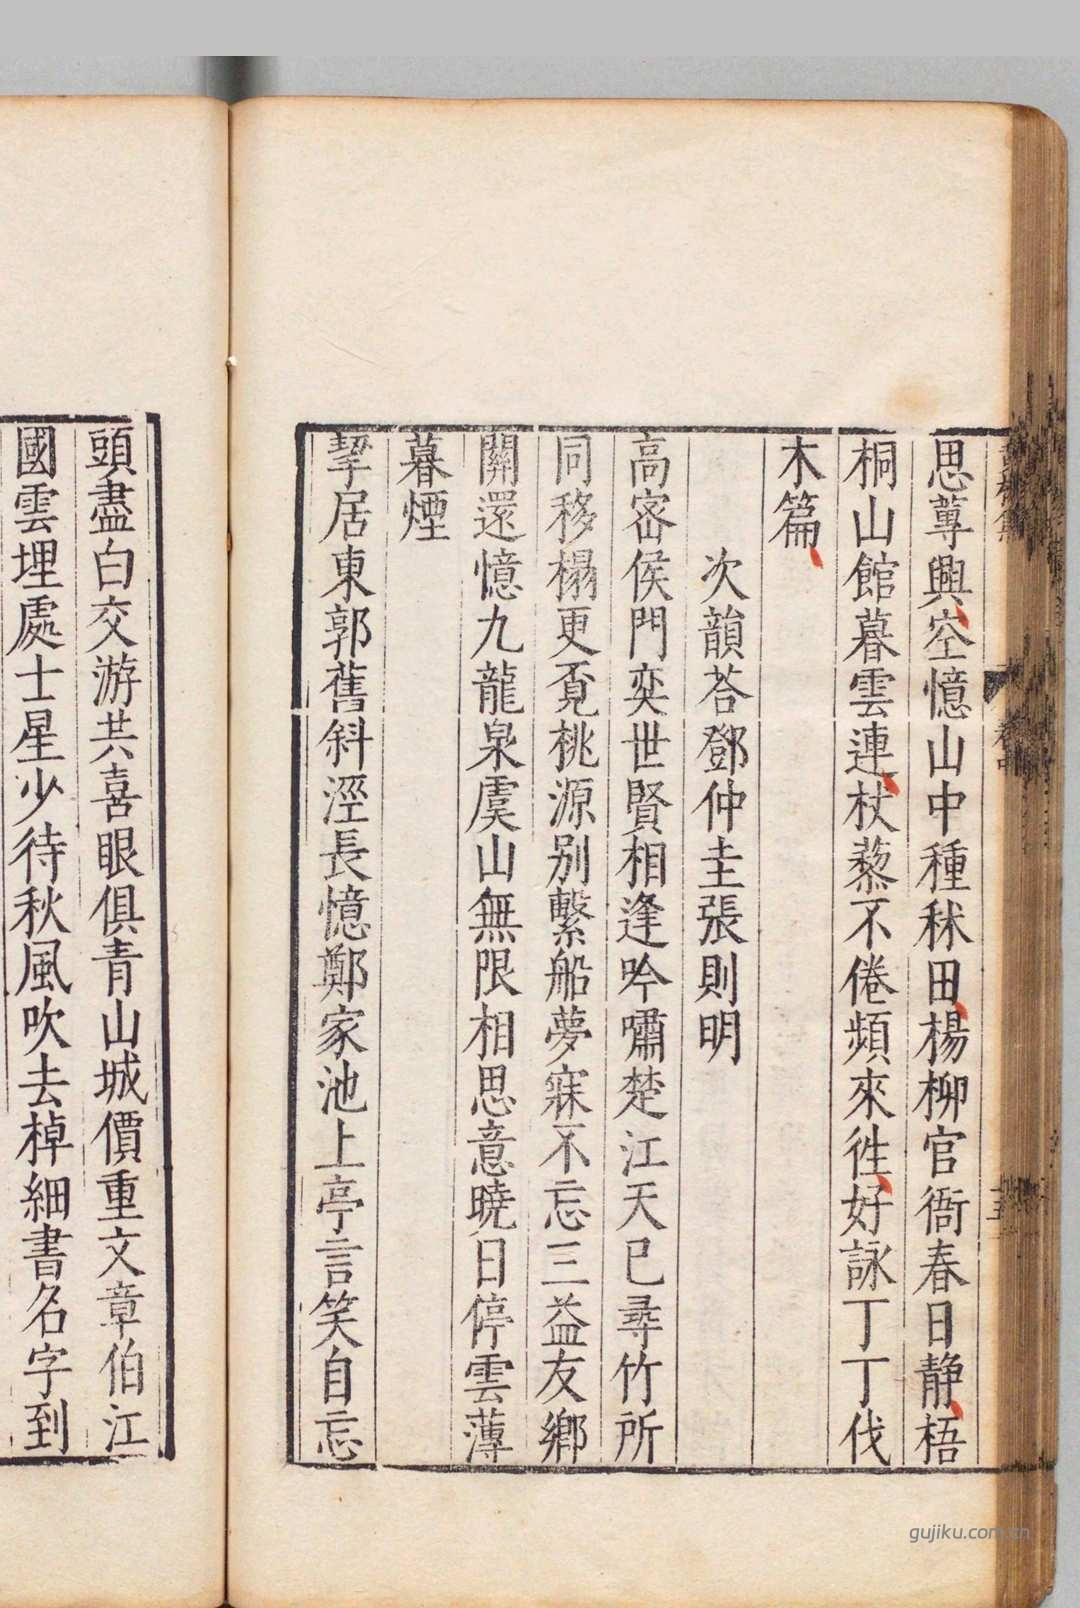 思蓴興空憶山中種秫田楊柳官衙春日静梧
桐山館暮雲連杖藜不倦頻來徃好詠丁丁伐
木篇
次韻荅鄧仲圭張則明
高宻侯門奕世賢相逢吟嘯楚江天已尋竹所
同移榻更覔桃源别繫船夢寐不忘三益友鄉
關還憶九龍泉虞山無限相思意曉日停雲薄
暮煙
挈居東郭舊斜涇長憶鄭家池上亭言笑自忘
頭盡白交游共喜眼俱青山城價重文章伯江
國雲埋處士星少待秋風吹去棹細書名字到
gujiku.com.cn